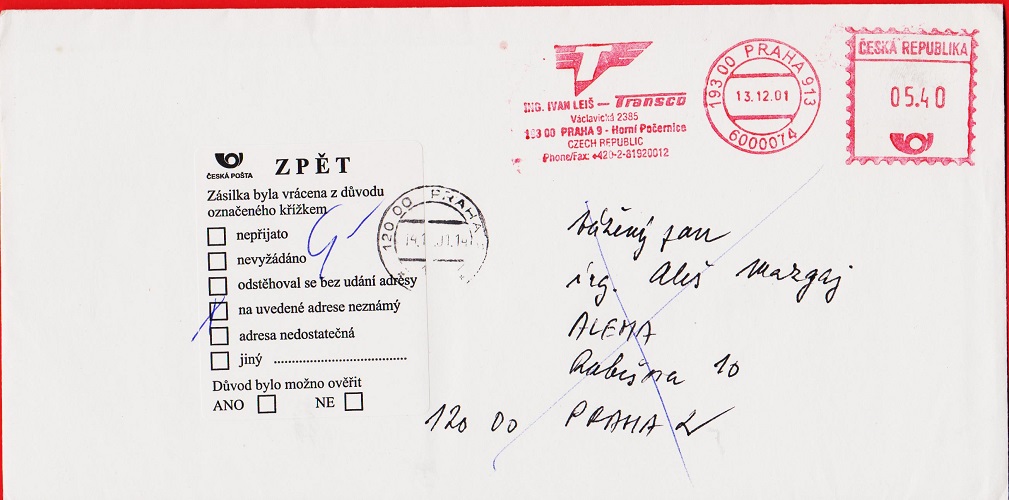 T
ING. IVAN LEIŠ — Transco
Václavická 2385
193 00 PRAHA 9 - Horní Počernice
CZECH REPUBLIC
Phone/Fax: +420-2-81920012
193 00 PRAHA 913
13.12.01
6000074
ČESKÁ REPUBLIKA
05.40
ČESKÁ POŠTA
ZPĚT
Zásilka byla vrácena z důvodu
označeného křížkem
nepřijato
nevyžádáno
odstěhoval se bez udání adresy
na uvedené adrese neznámý
adresa nedostatečná
jiný ......................................
Důvod bylo možno ověřit
ANO NE
120 00 PRAHA
Vážený pan
ing. Aleš Mazgaj
ALEMA
10
120 00 PRAHA 2